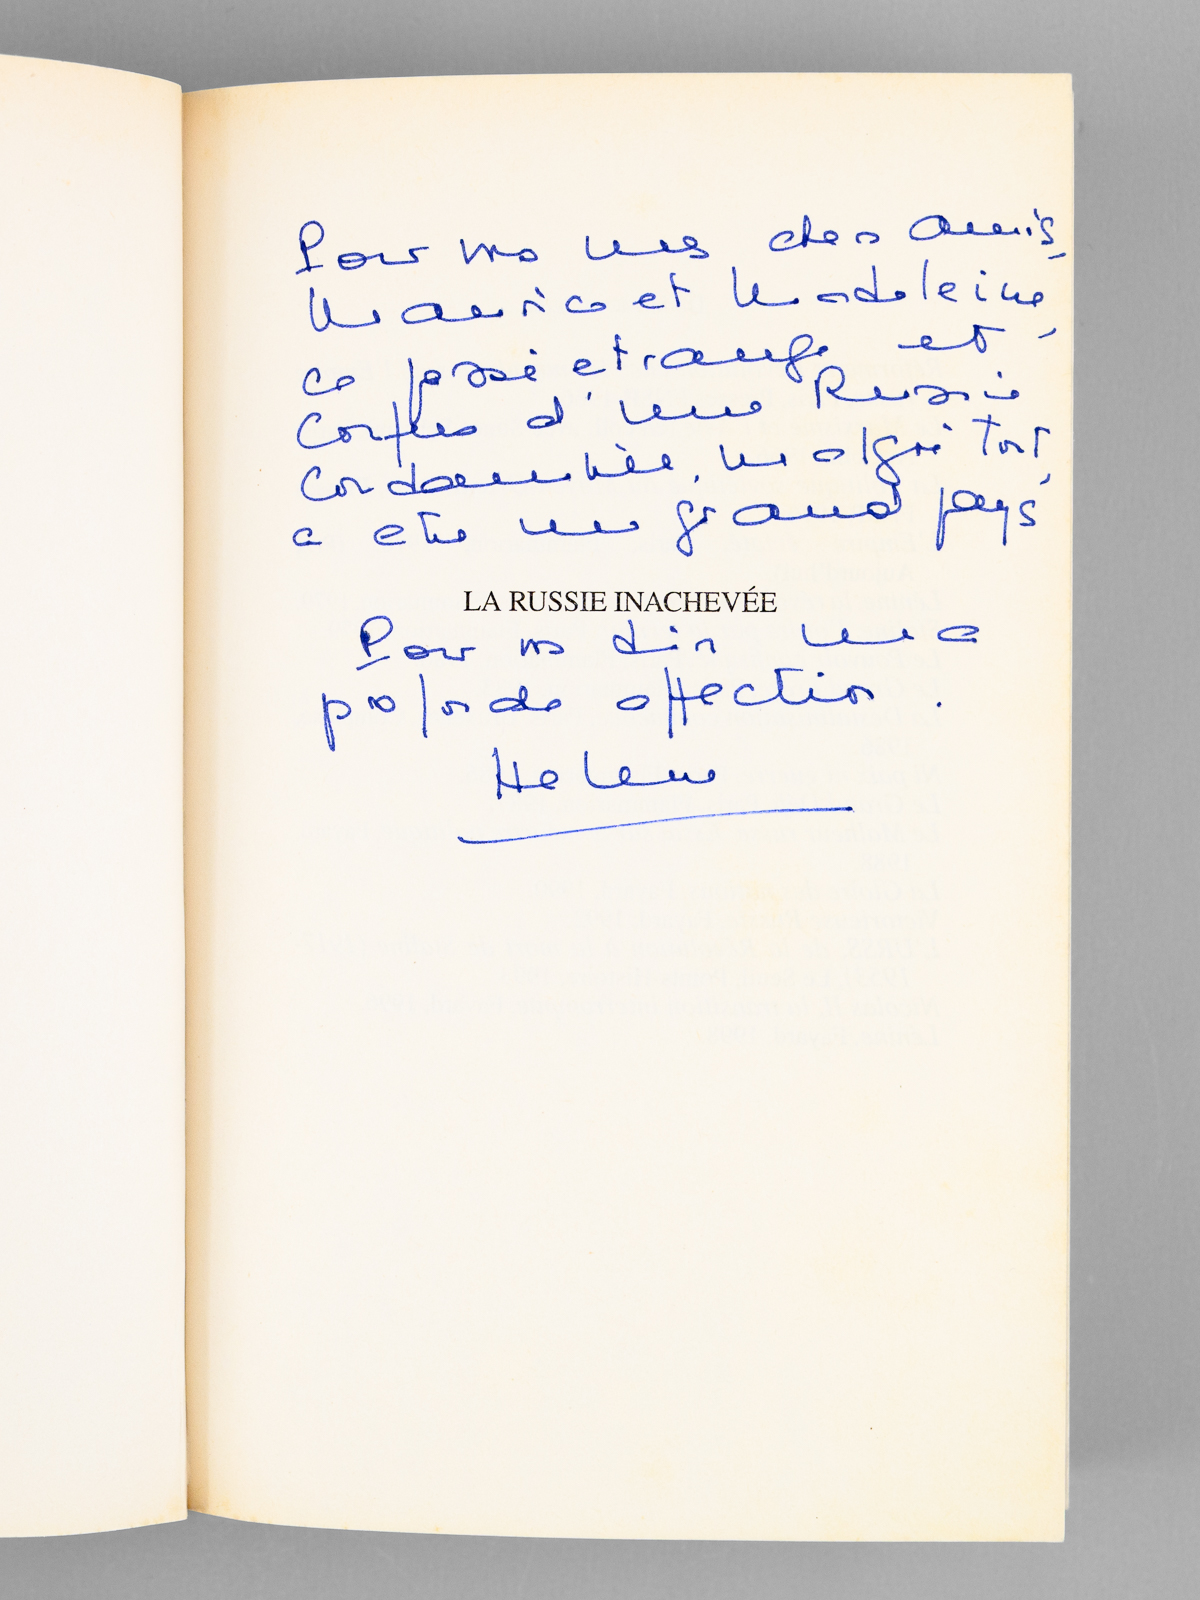 Pour vous mes chers amis,
Maurice et Madeleine,
ce passé étrange et
confus d'une Russie
condamnée, malgré tout,
a été un grand pays
LA RUSSIE INACHEVÉE
Pour vous dire une
profonde affection.
Helene